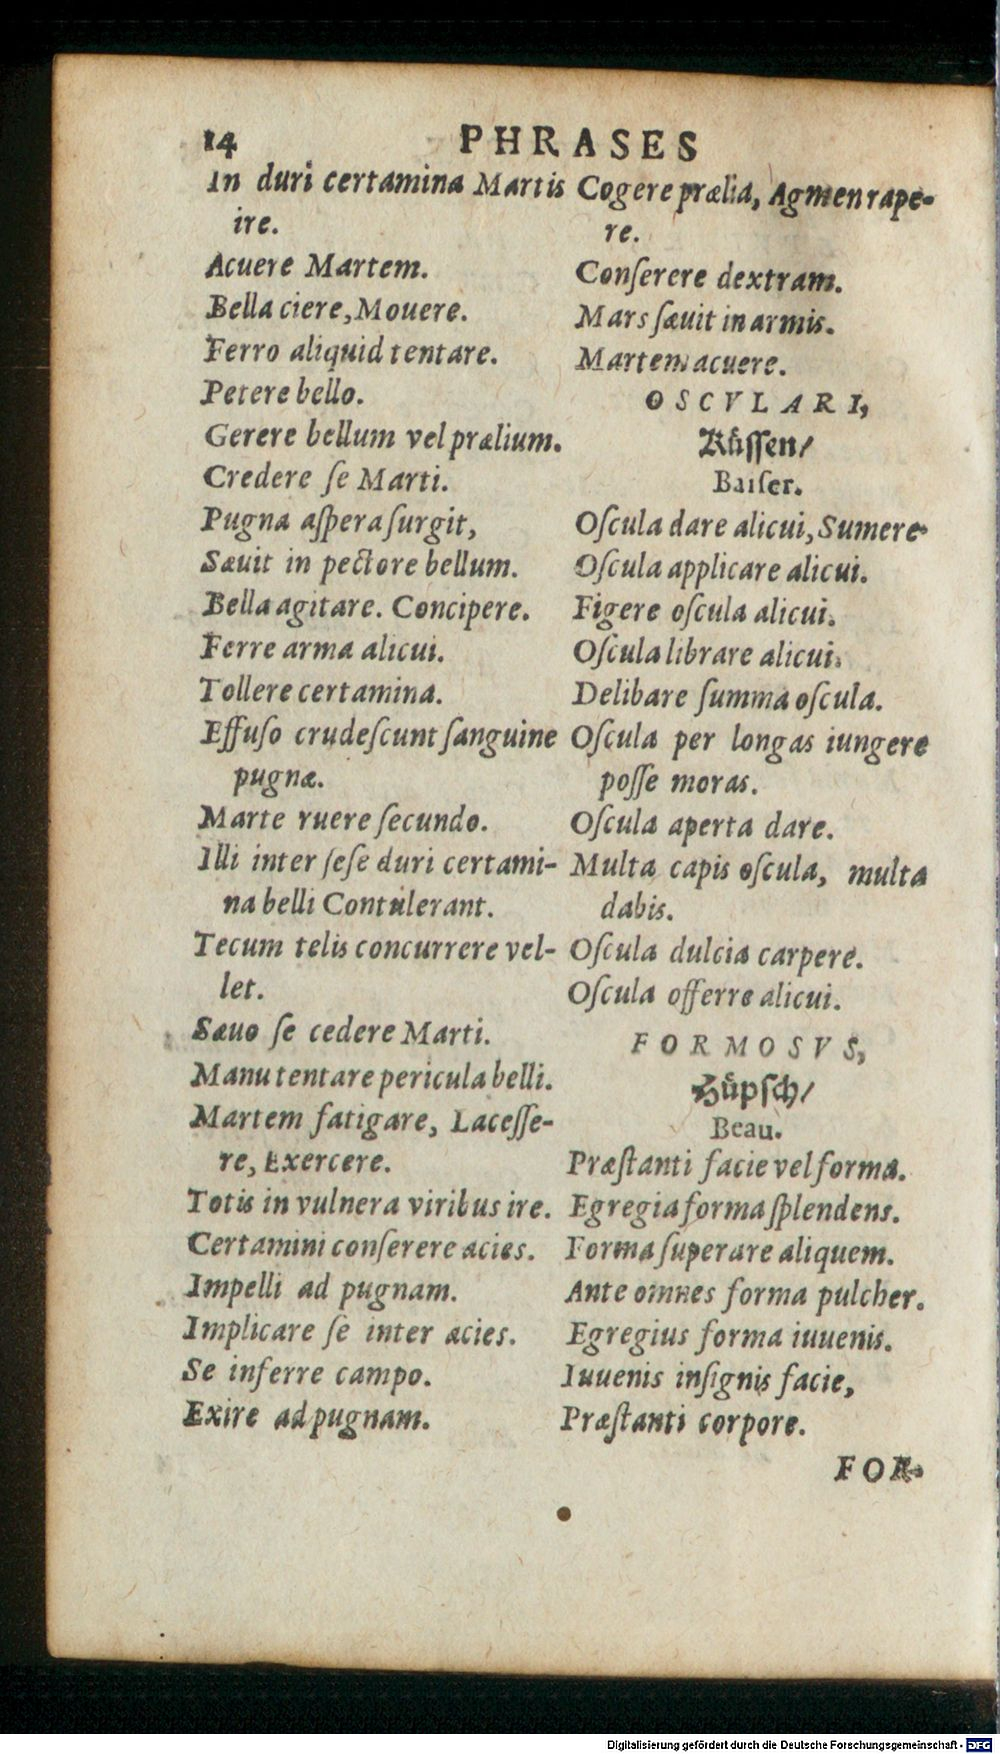 14 PHRASES
In duri certamina Martis
ire.
Acuere Martem.
Bella ciere, Mouere.
Ferro aliquid tentare.
Petere bello.
Gerere bellum vel prælium.
Credere ſe Marti.
Pugna aſpera ſurgit,
Sæuit in pectore bellum.
Bella agitare. Concipere.
Ferre arma alicui.
Tollere certamina.
Effuſo crudeſcunt ſanguine
pugnæ.
Marte ruere ſecundo.
Illi inter ſeſe duri certami-
na belli Contulerant.
Tecum telis concurrere vel-
let.
Sæuo ſe cedere Marti.
Manu tentare pericula belli.
Martem fatigare, Laceſſe-
re, Exercere.
Totis in vulnera viribus ire.
Certamini conſerere acies.
Impelli ad pugnam.
Implicare ſe inter acies.
Se inferre campo.
Exire ad pugnam.
Cogere prælia, Agmen rape-
re.
Conſerere dextram.
Mars ſæuit in armis.
Martem acuere.
OSCVLARI,
Küſſen/
Baiſer.
Oſcula dare alicui, Sumere.
Oſcula applicare alicui.
Figere oſcula alicui.
Oſcula librare alicui.
Delibare ſumma oſcula.
Oſcula per longas iungere
poſſe moras.
Oſcula aperta dare.
Multa capis oſcula, multa
dabis.
Oſcula dulcia carpere.
Oſcula offerre alicui.
FORMOSVS,
Hüpſch/
Beau.
Præſtanti facie vel forma.
Egregia forma ſplendens.
Forma ſuperare aliquem.
Ante omnes forma pulcher.
Egregius forma iuuenis.
Iuuenis inſignis facie,
Præſtanti corpore.
FOR-
Digitalisierung gefördert durch die Deutsche Forschungsgemeinschaft - DFG